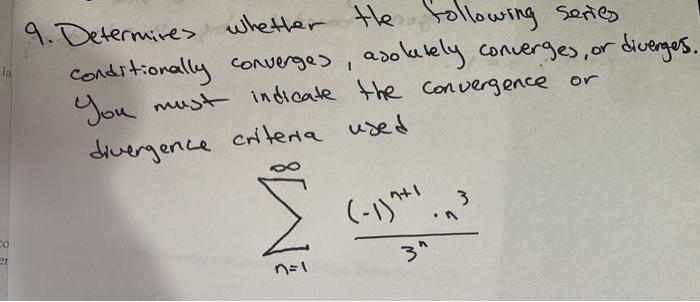 9. Determines whether the following series
conditionally converges, asolutely converges, or diverges.
You must indicate the convergence or
divergence criteria used
∞
∑ (-1)^{n+1} · n^3 / 3^n
n=1